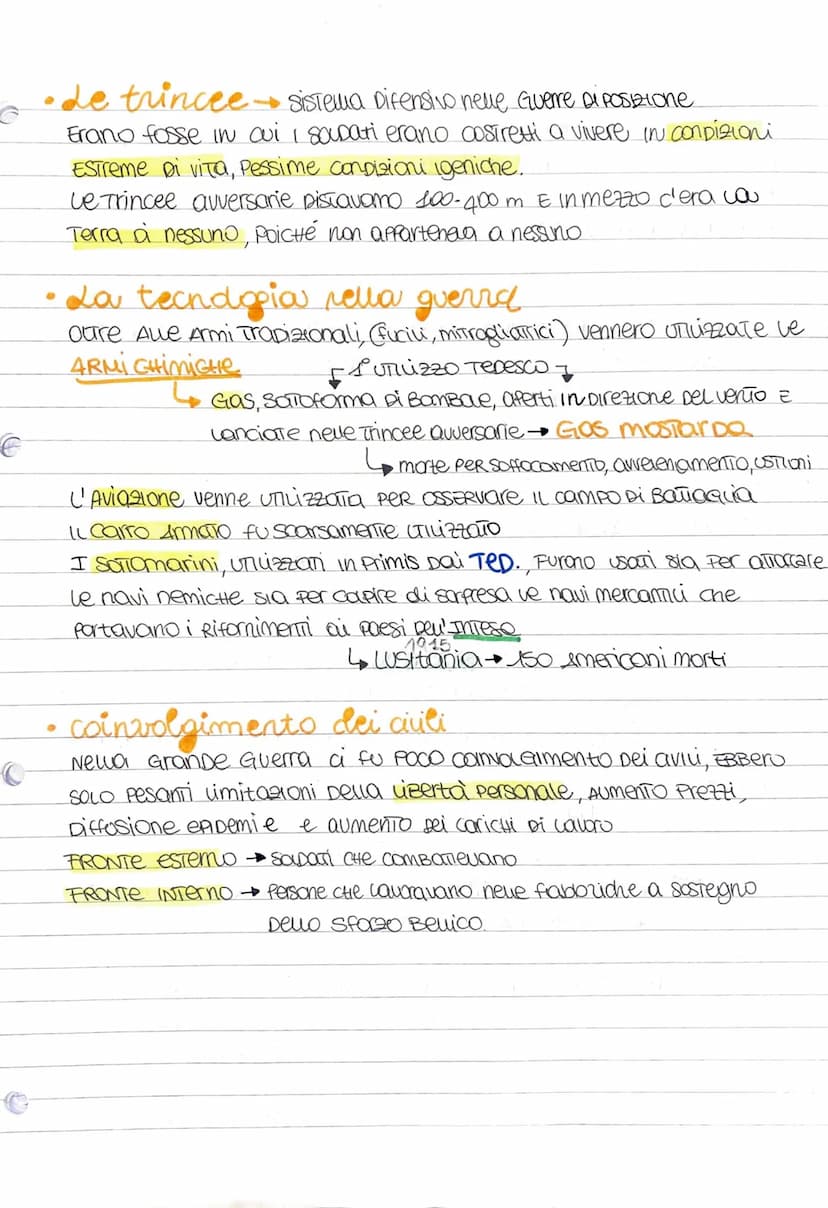 • Le trincee → sistema difensivo nelle guerre di posizione
Erano fosse in cui i soldati erano costretti a vivere in condizioni
estreme di vita, pessime condizioni igeniche.
Le trincee avversarie distavamo 100-400 m e in mezzo c'era la
terra di nessuno, poiché non apparteneva a nessuno
• La tecnologia nella guerra
Oltre alle armi tradizionali, (fucili, mitragliatrici) vennero utilizzate le
ARMI CHIMICHE
1° utilizzo tedesco
→ Gas, sottoforma di bombole, aperti in direzione del vento e
lanciate nelle trincee avversarie → Gas mostarda
↳ morte per soffocamento, avvelenamento, ustioni
L'Aviazione venne utilizzata per osservare il campo di battaglia
Il carro armato fu scarsamente utilizzato
I sottomarini, utilizzati in primis dai TED., furono usati sia per attaccare
le navi nemiche sia per colpire di sorpresa le navi mercantili che
portavano i rifornimenti ai paesi dell'Intesa
1915
↳ Lusitania → 150 americani morti
• coinvolgimento dei civili
Nella Grande Guerra ci fu poco coinvolgimento dei civili, ebbero
solo pesanti limitazioni della libertà personale, aumento prezzi,
diffusione epidemie e aumento dei carichi di lavoro
FRONTE ESTERNO → soldati che combattevano
FRONTE INTERNO → persone che lavoravano nelle fabbriche a sostegno
dello sforzo bellico.